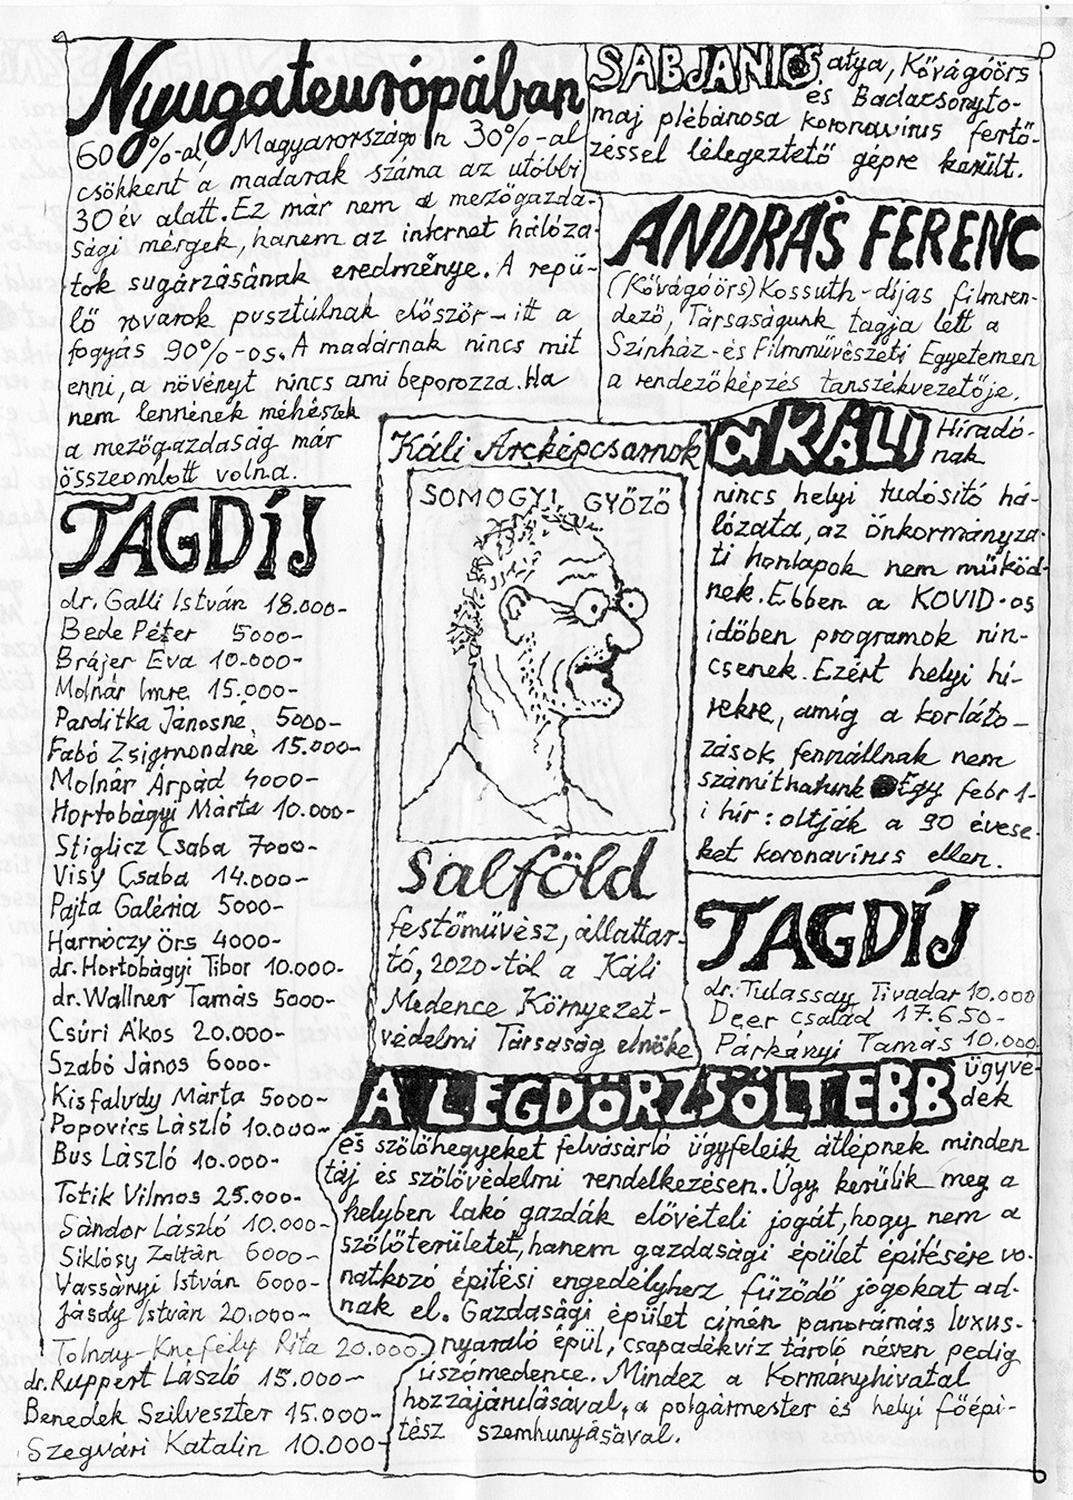 Nyugateurópában
60%-al, Magyarországon 30%-al
csökkent a madarak száma az utóbbi
30 év alatt. Ez már nem a mezőgazda-
sági mérgek, hanem az internet hálóza-
tok sugárzásának eredménye. A repü-
lő rovarok pusztúlnak először - itt a
fogyás 90%-os. A madárnak nincs mit
enni, a növényt nincs ami beporozza. Ha
nem lennének méhészek
a mezőgazdaság már
összeomlott volna.
SABJANICS atya, Kővágóörs
és Badacsonyto-
maj plébánosa koronavírus fertő-
zéssel lélegeztető gépre került.
ANDRÁS FERENC
(Kővágóörs) Kossuth-díjas filmren-
dező, Társaságunk tagja lett a
Színház- és Filmművészeti Egyetemen
a rendezőképzés tanszékvezetője.
TAGDÍJ
dr. Galli István 18.000-
Bede Péter 5000-
Brájer Éva 10.000-
Molnár Imre 15.000-
Parditka Jánosné 5000-
Fabó Zsigmondné 15.000-
Molnár Árpád 4000-
Hortobágyi Márta 10.000-
Stiglicz Csaba 7000-
Visy Csaba 14.000-
Pajta Galéria 5000-
Harnóczy Örs 4000-
dr. Hortobágyi Tibor 10.000-
dr. Wallner Tamás 5000-
Csúri Ákos 20.000-
Szabó János 6000-
Kisfaludy Márta 5000-
Popovics László 10.000-
Bus László 10.000-
Totik Vilmos 25.000-
Sándor László 10.000-
Siklósy Zoltán 6000-
Vassányi István 6000-
Jásdy István 20.000-
Tolnay-Knefély Rita 20.000-
dr. Ruppert László 15.000-
Benedek Szilveszter 15.000-
Szegvári Katalin 10.000-
Káli Arcképcsarnok
SOMOGYI GYŐZŐ
Salföld
festőművész, állattar-
tó, 2020-tól a Káli
Medence Környezet-
védelmi Társaság elnöke
a KÁLI Híradó-
nak
nincs helyi tudósító há-
lózata, az önkormányza-
ti honlapok nem működ-
nek. Ebben a KOVID-os
időben programok nin-
csenek. Ezért helyi hí-
rekre, amíg a korláto-
zások fennállnak nem
számíthatunk Egy febr 1-
i hír: oltják a 90 évese-
ket koronavírus ellen.
TAGDÍJ
dr. Tulassay Tivadar 10.000
Deér család 17.650-
Párkányi Tamás 10.000
A LEGDÖRZSÖLTEBB ügyvé-
dek
és szőlőhegyeket felvásárló ügyfeleik átlépnek minden
táj és szőlővédelmi rendelkezésen. Úgy kerülik meg a
helyben lakó gazdák elővételi jogát, hogy nem a
szőlőterületet, hanem gazdasági épület építésére vo-
natkozó építési engedélyhez fűződő jogokat ad-
nak el. Gazdasági épület címén panorámás luxus-
nyaraló épül, csapadékvíz tároló néven pedig
úszómedence. Mindez a Kormányhivatal
hozzájárulásával, a polgármester és helyi főépí-
tész szemhunyásával.